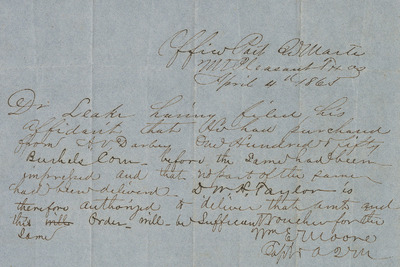 Office Post Q Master
Mt Pleasant Texas
April 4th 1865
Dr Leake having filed his
affidavit that he had purchased
from A. V. Darby One Hundred & fifty
Bushels Corn before the same had been
impressed and that no part of the same
had been delivered. D W H Taylor is
therefore authorized to deliver that amt and
this Order will be sufficient voucher for the
same
Wm E Moore
Capt & AQM